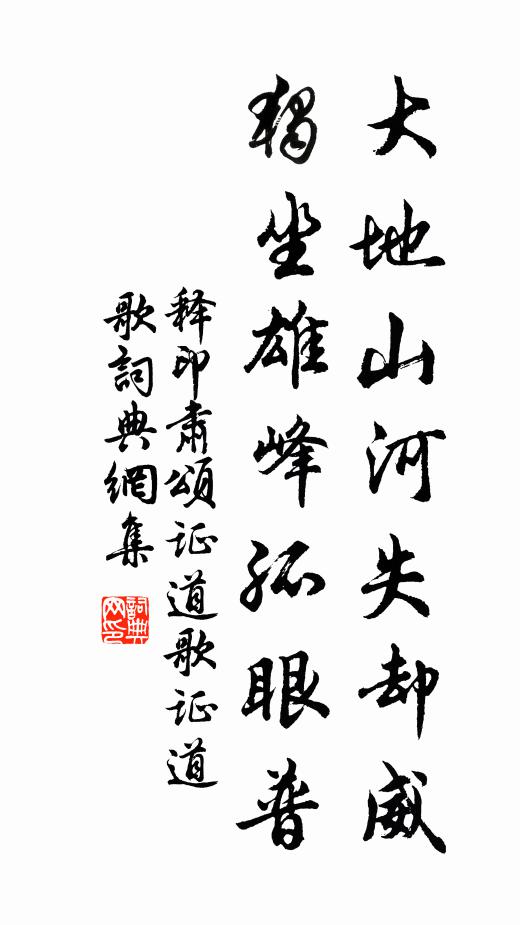 大地山河失却威
獨坐雄峰孤眼普
释印肃頌证道歌证道
歌詞典網集
詞典
网印